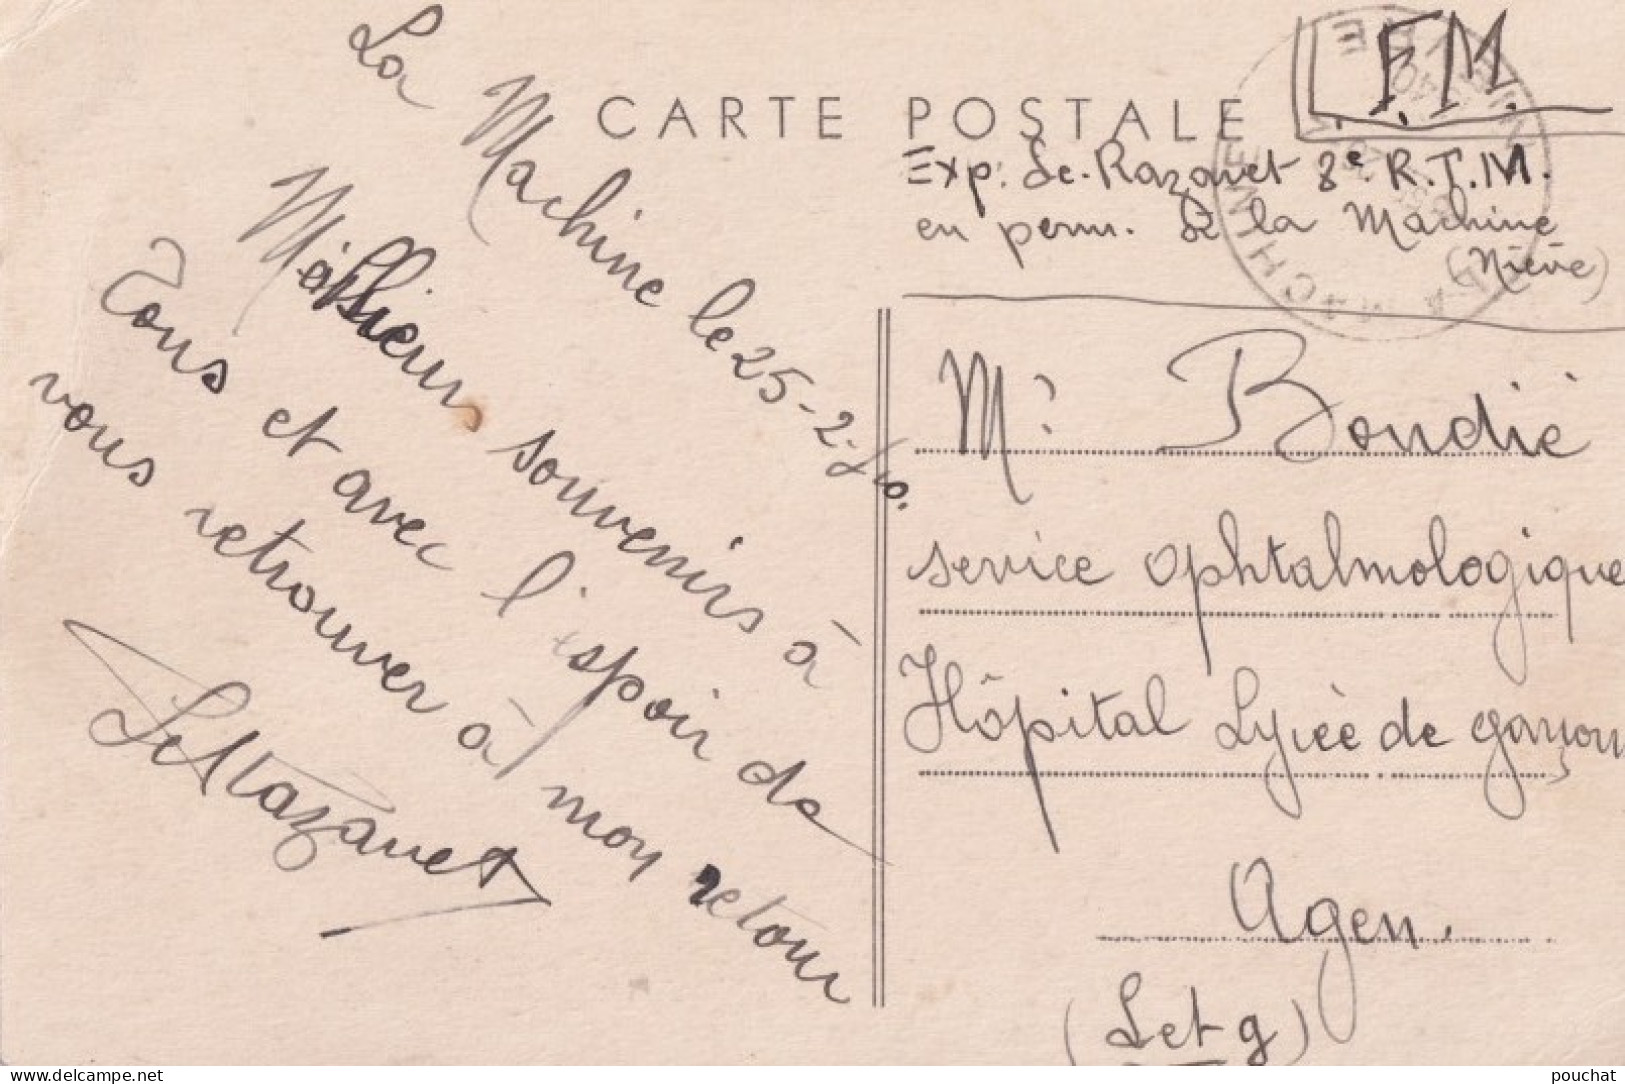 CARTE POSTALE
F.M.
Exp: Sc. Razavet 8e R.T.M.
en perm. à la Machine
(Nièvre)
La Machine le 25-2-40.
Meilleurs souvenirs à
Tous et avec l'espoir de
vous retrouver à mon retour
Razavet
Mr. Bondié
service Ophtalmologique
Hôpital Lycée de garçons
Agen.
(Let g)
delcampe.net
pouchat